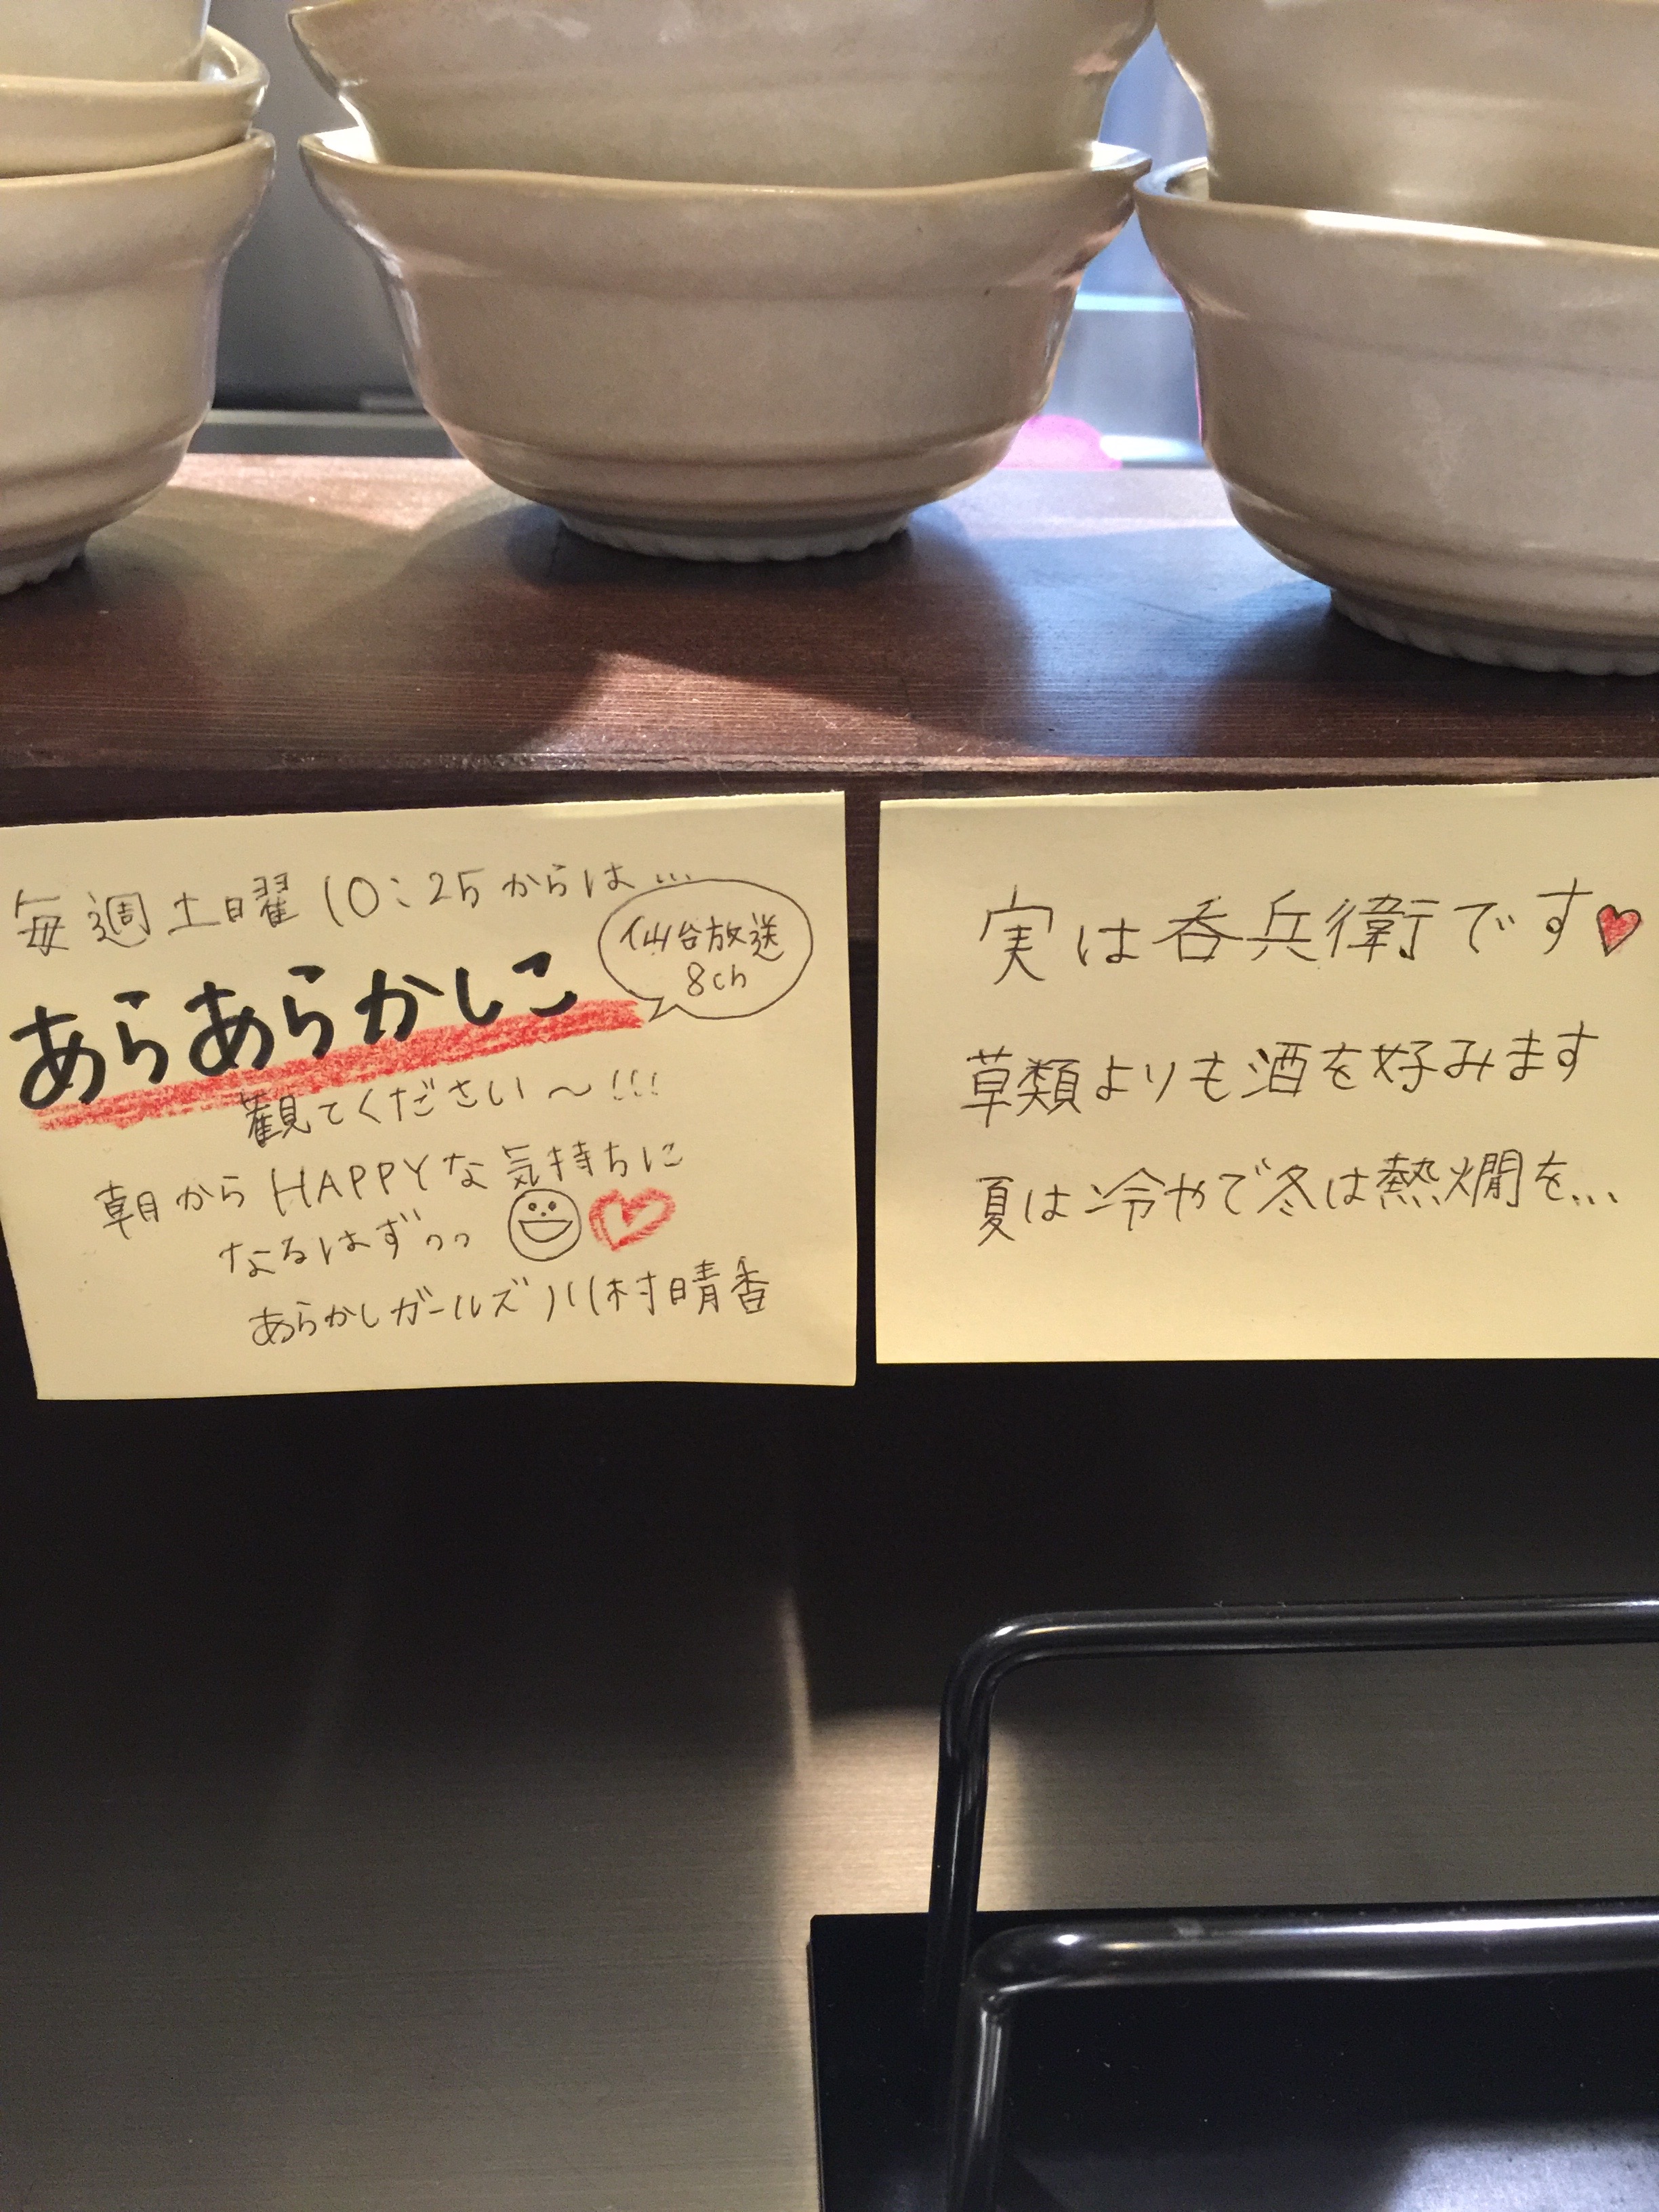 毎週土曜10:25からは...
仙台放送
8ch
あらあらかしこ
観てください〜!!!
朝からHAPPYな気持ちに
なるはずっっ
あらかしガールズ川村晴香
実は呑兵衛です♥
草類よりも酒を好みます
夏は冷やで冬は熱燗を...